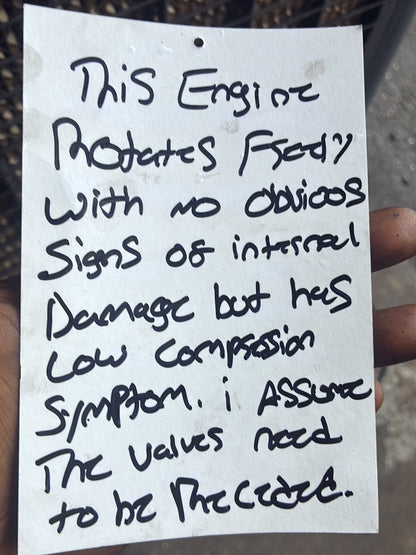 This Engine
Rotates Freely
with no obvious
Signs of internal
Damage but has
Low Compression
Symptom. i Assume
The valves need
to be Receded.